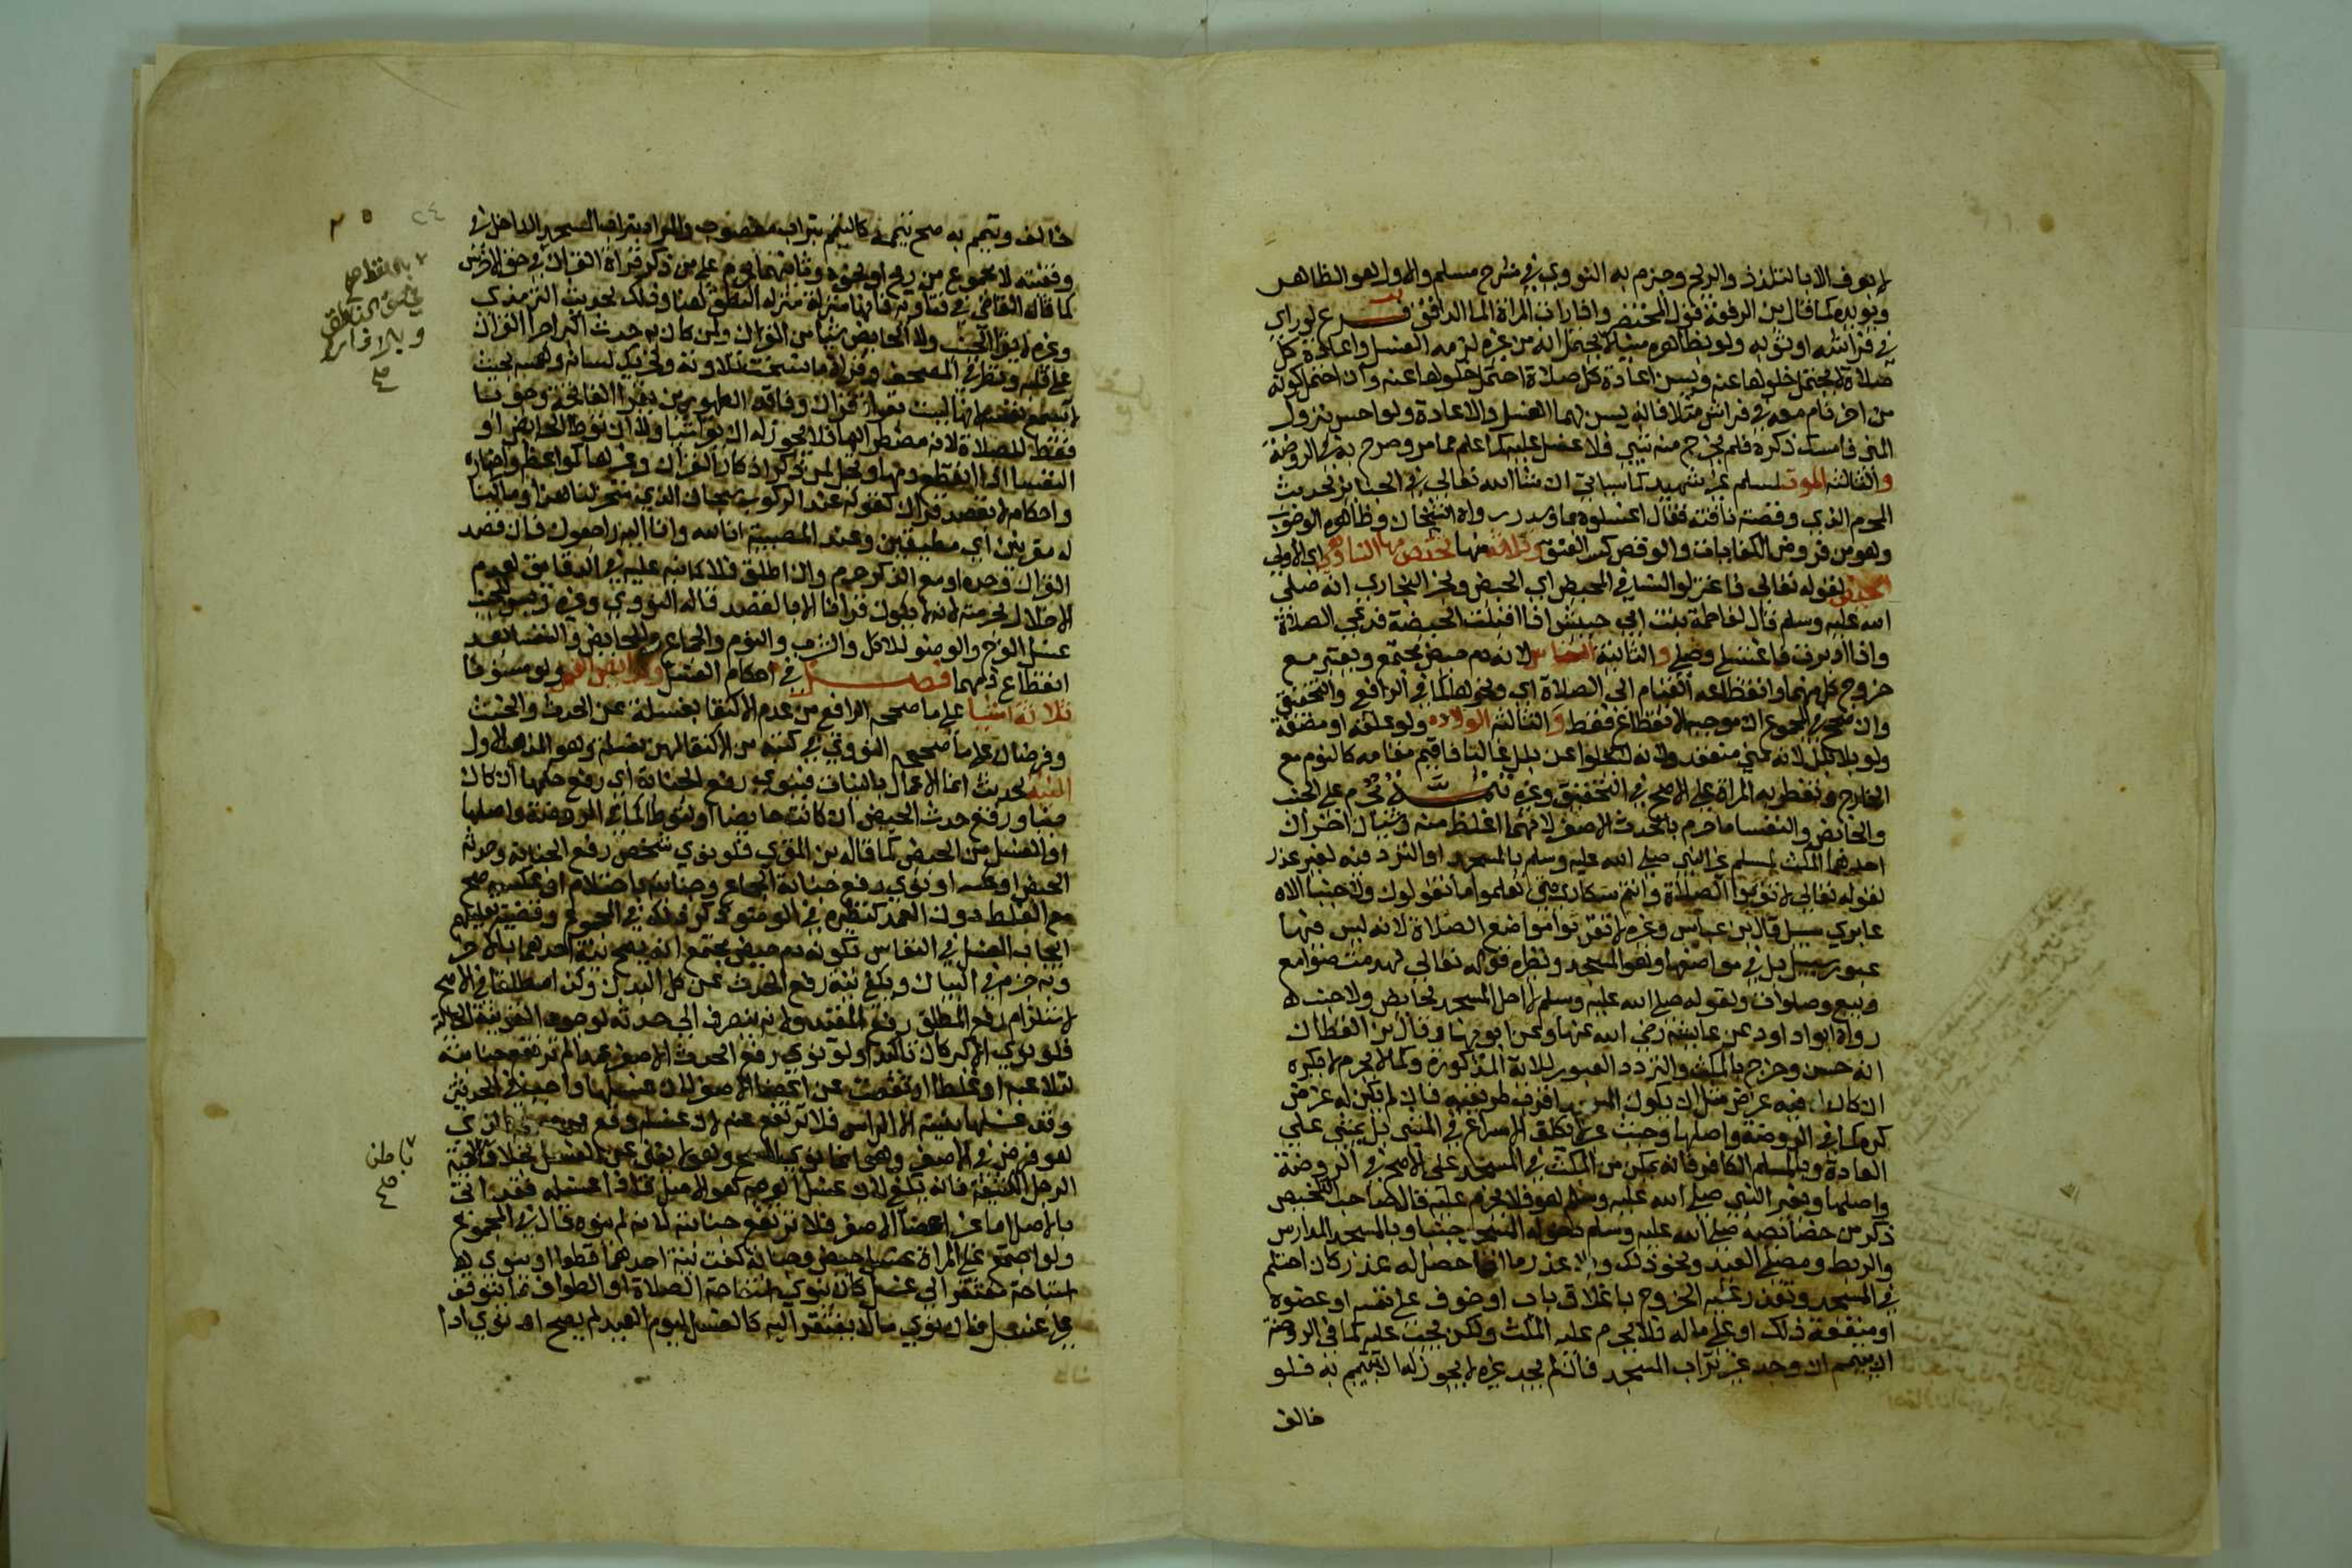 لا يعرف الا بالتلذذ والريح وجزم به النووي في شرح مسلم والاول هو الظاهر
ويؤيده كما قال بن الرفعة قول المختصر واذا رات المراة الما الدافق فرع لو راي
في فراشه او ثوبه ولو بظاهره منيا لا يحتمل انه من غيره لزمه الغسل واعادة كل
صلاة لا يحتمل خلوها عنه ويسن اعادة كل صلاة احتمل خلوها عنه وان احتمل كونه
من اخر نام معه في فراش مثلا فانه يسن لهما الغسل والاعادة ولو احس بنزول
المني فامسك ذكره فلم يخرج منه شي فلا غسل عليه كما علم مما مر وصرح به في الروضة
والثالثة الموت لمسلم غير شهيد كما سياتي ان شا الله تعالى في الجنايز لحديث
المحرم الذي وقصته ناقته فقال اغسلوه بما وسدر رواه الشيخان وظاهره الوجوب
وهو من فروض الكفايات والوقص كسر العنق وثلاثة منها تختص بها النسا وهي اي الاولى
الحيض لقوله تعالى فاعتزلوا النسا في المحيض اي الحيض ولخبر البخاري انه صلى
الله عليه وسلم قال لفاطمة بنت ابي حبيش اذا اقبلت الحيضة فدعي الصلاة
واذا ادبرت فاغتسلي وصلي والثانية النفاس لانه دم حيض مجتمع ويعتبر مع
خروج كل منهما وانقطاعه القيام الى الصلاة اي ونحوها كما في الرافعي والتحقيق
وان صحح في المجموع ان موجبه الانقطاع فقط والثالثة الولادة ولو علقة او مضغة
ولو بلا بلل لانه مني منعقد ولانه لا يخلوا عن بلل غالبا فاقيم مقامه كالنوم مع
الخارج وتفطر به المراة على الاصح في التحقيق وغيره تتمة يحرم على الجنب
والحايض والنفسا ما حرم بالحدث الاصغر لانهما اغلظ منه وشيان اخران
احدهما المكث لمسلم غير النبي صلى الله عليه وسلم بالمسجد او التردد فيه لغير عذر
لقوله تعالى لا تقربوا الصلاة وانتم سكارى حتى تعلموا ما تقولون ولا جنبا الا
عابري سبيل قال بن عباس وغيره لا تقربوا مواضع الصلاة لانه ليس فيها
عبور سبيل بل في مواضعها وهو المسجد ونظيره قوله تعالى لهدمت صوامع
وبيع وصلوات ولقوله صلى الله عليه وسلم لا احل المسجد لحايض ولا جنب
رواه ابو داود عن عايشة رضي الله عنها وعن ابويها وقال بن القطان
انه حسن وخرج بالمكث والتردد العبور للاية المذكورة وكما لا يحرم لا يكره
ان كان له فيه غرض مثل ان يكون المسجد اقرب طريقيه فان لم يكن له غرض
كره كما في الروضة واصلها وحيث عبر لا يكلف الاسراع في المشي بل يمشي على
العادة وبالمسلم الكافر فانه يمكن من المكث في المسجد على الاصح في الروضة
واصلها وبغير النبي صلى الله عليه وسلم هو فلا يحرم عليه قال صاحب التلخيص
ذكر من خصائصه صلى الله عليه وسلم دخوله المسجد جنبا وبالمسجد المدارس
والربط ومصلى العيد ونحو ذلك وبلا عذر ما اذا حصل له عذر كان احتلم
في المسجد وتعذر عليه الخروج باغلاق باب او خوف على نفسه او عضوه
او منفعة ذلك او على ماله فلا يحرم عليه المكث ولكن يجب عليه كما في الروضة
ان يتيمم ان وجد غير تراب المسجد فان لم يجد غيره لا يجوز له ان يتيمم به فلو
خالف
خالف وتيمم به صح تيممه كالتيمم بتراب مغصوب والمراد بتراب المسجد الداخل في
وقفيته لا مجموع من ريح او نحوه وثانيهما يحرم على من ذكر قراة القران في حق الاخرس
كما قاله القاضي في فتاويه فانها منزلة منزلة النطق هنا وذلك لحديث الترمذي
وغيره لا يقرا الجنب ولا الحايض شيا من القران ولمن كان به حدث اكبر اجرا القران
على قلبه ونظر في المصحف وقراة ما نسخت تلاوته وتحريك لسانه وهمسه بحيث
لا يسمع نفسه لانها ليست بقراة قران وفاقد الطهورين يقرا الفاتحة وجوبا
فقط للصلاة لانه مضطر اليها فلا يجوز له ان يوطا الحايض او
النفسا اذا انقطع دمهما ويحل لمن ذكر اذكار القران وغيرها كمواعظه واخباره
واحكامه لا بقصد قران كقوله عند الركوب سبحان الذي سخر لنا هذا وما كنا
له مقرنين اي مطيقين وعند المصيبة انا لله وانا اليه راجعون فان قصد
القران وحده او مع الذكر حرم وان اطلق فلا كما نبه عليه في الدقايق لعدم
الاخلال بحرمته لانه لا يكون قرانا الا بالقصد قاله النووي وغيره ويسن للجنب
غسل الفرج والوضو للاكل والشرب والنوم والجماع وللحايض والنفسا بعد
انقطاع دمهما فصل في احكام الغسل وفرايض الغسل ولو مسنونا
ثلاثة اشيا على ما صححه الرافعي من عدم الاكتفا بغسلة عن الحدث والخبث
وفرضان على ما صححه النووي في كتبه من الاكتفا لهما بغسلة وهو المذهب الاول
النية لحديث انما الاعمال بالنيات فينوي رفع الجنابة اي رفع حكمها ان كان
جنبا ورفع حدث الحيض ان كانت حايضا او لتوطا كما في الروضة واصلها
او الغسل من الحيض كما قاله بن المقري فلو نوى شخص رفع الجنابة وحدثه
الحيض او عكسه او نوى رفع جنابة الجماع وجنابته باحتلام او عكسه صح
مع الغلط دون العمد كنظيره في الوضو ذكر ذلك في المجموع وقضية تعليلهم
ايجاب الغسل في النفاس بكونه دم حيض مجتمع انه يصح نية احدهما بالاخر
وبه جزم في البيان ويكفي نية رفع الحدث عن كل البدن وكذا مطلقا في الاصح
لاستلزام رفع المطلق رفع المقيد ولانه ينصرف الى حدثه لوجود القرينة الحالية
فلو نوى الاكبر كان تاكيدا ولو نوى رفع الحدث الاصغر عمدا لم ترتفع جنابته
لتلاعبه او غلطا ارتفعت عن اعضا الاصغر لان غسلها واجب في الحدثين
وقد غسلها بنيته الا الراس فلا ترتفع عنه لان غسله وقع بدل عن مسحه الذي
هو فرض في الاصغر وهو انما نوى المسح وهو لا يغني عن الغسل بخلاف
الرجل الكثيفة فانه يكفي لان غسل الوجه هو الاصل فاذا غسله فقد اتى
بالاصل اما غير اعضا الاصغر فلا ترتفع جنابته لانه لم ينوه قال في المجموع
ولو اجتمع على المراة غسل حيض وجنابة كفت نية احدهما قطعا او ينوي
استباحة مفتقر الى غسل كان ينوي استباحة الصلاة او الطواف مما يتوقف
على غسل فان نوى ما لا يفتقر اليه كالغسل ليوم العيد لم يصح او نوى ادا
باطن
صح